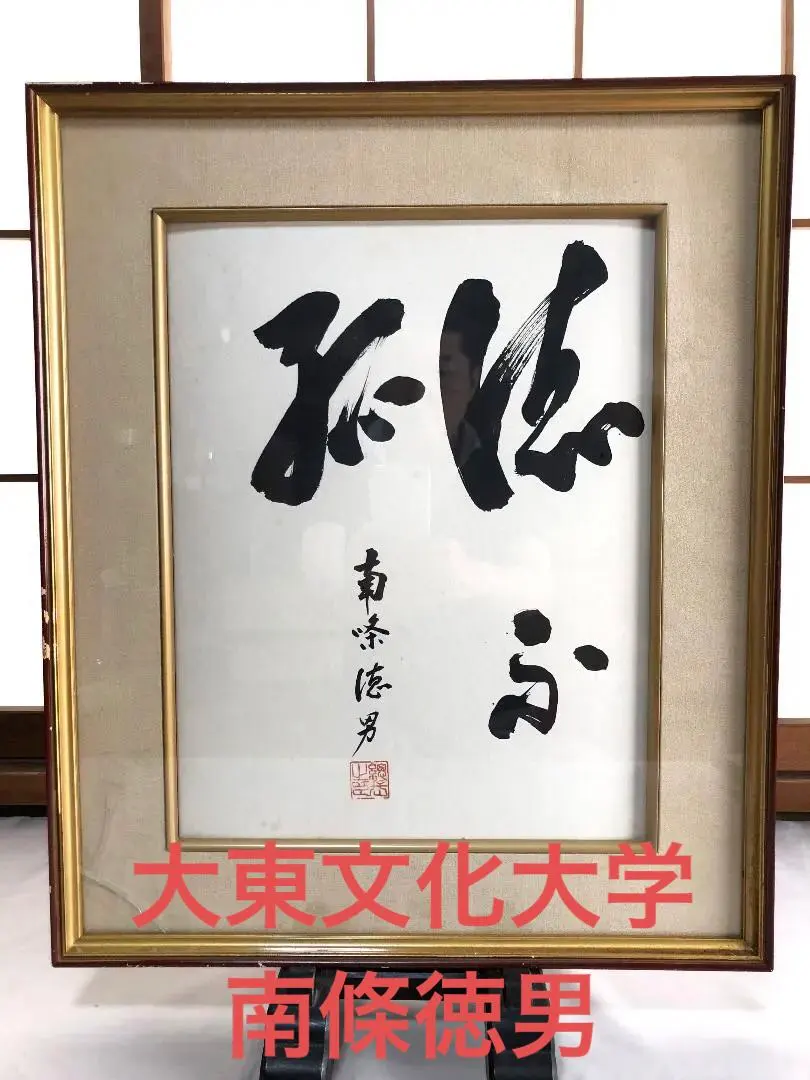 徳不
孤
南條徳男
大東文化大学
南條徳男